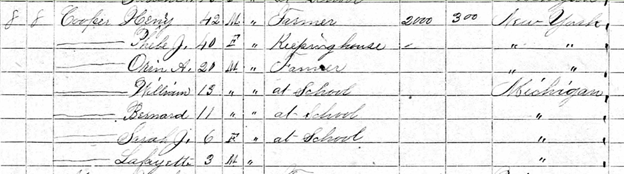 8 8 Cooper Heny 42 M " Farmer 2000 300 New York
— Phebe J. 40 F " Keeping house — " "
— Orin A. 21 M " Farmer " "
— William 13 " " at School Michigan
— Bernard 11 " " at School "
— Sarah J. 6 F " at School "
— Lafayette 3 M " "